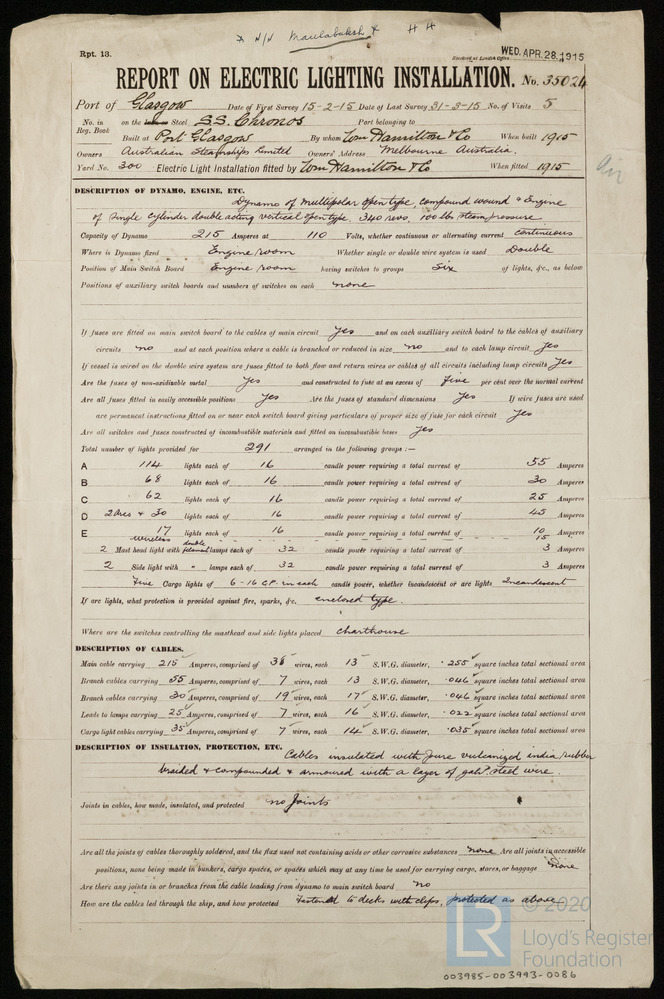 N/N Maulabaksh H H
Rpt. 13.
Received at London Office WED. APR. 28. 1915
REPORT ON ELECTRIC LIGHTING INSTALLATION. No. 35024
Port of Glasgow Date of First Survey 15-2-15 Date of Last Survey 31-3-15 No. of Visits 5
No. in Reg. Book on the Iron or Steel S.S. Chronos Port belonging to
Built at Port Glasgow By whom Wm Hamilton & Co When built 1915
Owners Australian Steamships Limited Owners' Address Melbourne Australia.
Yard No. 300 Electric Light Installation fitted by Wm Hamilton & Co When fitted 1915
DESCRIPTION OF DYNAMO, ENGINE, ETC.
Dynamo of multipolar open type, compound wound & Engine
of single cylinder double acting vertical open type, 340 revs. 100 lb steam pressure
Capacity of Dynamo 215 Amperes at 110 Volts, whether continuous or alternating current continuous
Where is Dynamo fixed Engine room Whether single or double wire system is used Double
Position of Main Switch Board Engine room having switches to groups Six of lights, &c., as below
Positions of auxiliary switch boards and numbers of switches on each none
If fuses are fitted on main switch board to the cables of main circuit Yes and on each auxiliary switch board to the cables of auxiliary
circuits no and at each position where a cable is branched or reduced in size no and to each lamp circuit Yes
If vessel is wired on the double wire system are fuses fitted to both flow and return wires or cables of all circuits including lamp circuits Yes
Are the fuses of non-oxidizable metal Yes and constructed to fuse at an excess of five per cent over the normal current
Are all fuses fitted in easily accessible positions Yes Are the fuses of standard dimensions Yes If wire fuses are used
are permanent instructions fitted on or near each switch board giving particulars of proper size of fuse for each circuit Yes
Are all switches and fuses constructed of incombustible materials and fitted on incombustible bases Yes
Total number of lights provided for 291 arranged in the following groups :—
A 114 lights each of 16 candle power requiring a total current of 55 Amperes
B 68 lights each of 16 candle power requiring a total current of 30 Amperes
C 62 lights each of 16 candle power requiring a total current of 25 Amperes
D 2 Arcs & 30 lights each of 16 candle power requiring a total current of 45 Amperes
E 17 lights each of 16 candle power requiring a total current of 10 Amperes
wireless 15
2 Mast head light with double filament lamps each of 32 candle power requiring a total current of 3 Amperes
2 Side light with " lamps each of 32 candle power requiring a total current of 3 Amperes
Five Cargo lights of 6 - 16 C.P. in each candle power, whether incandescent or arc lights Incandescent
If arc lights, what protection is provided against fire, sparks, &c. enclosed type.
Where are the switches controlling the masthead and side lights placed charthouse
DESCRIPTION OF CABLES.
Main cable carrying 215 Amperes, comprised of 38 wires, each 13 S.W.G. diameter, .255 square inches total sectional area
Branch cables carrying 55 Amperes, comprised of 7 wires, each 13 S.W.G. diameter, .046 square inches total sectional area
Branch cables carrying 30 Amperes, comprised of 19 wires, each 17 S.W.G. diameter, .046 square inches total sectional area
Leads to lamps carrying 25 Amperes, comprised of 7 wires, each 16 S.W.G. diameter, .022 square inches total sectional area
Cargo light cables carrying 35 Amperes, comprised of 7 wires, each 14 S.W.G. diameter, .035 square inches total sectional area
DESCRIPTION OF INSULATION, PROTECTION, ETC.
Cables insulated with pure vulcanized india rubber
braided & compounded & armoured with a layer of galvd. steel wire.
Joints in cables, how made, insulated, and protected no joints
Are all the joints of cables thoroughly soldered, and the flux used not containing acids or other corrosive substances none Are all joints in accessible
positions, none being made in bunkers, cargo spaces, or spaces which may at any time be used for carrying cargo, stores, or baggage none
Are there any joints in or branches from the cable leading from dynamo to main switch board no
How are the cables led through the ship, and how protected Fastened to decks with clips, protected as above
© 2020
LR Lloyd's Register Foundation
003985-003993-0086